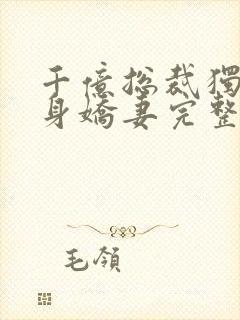 千億总裁獨
身嬌妻完整
毛領